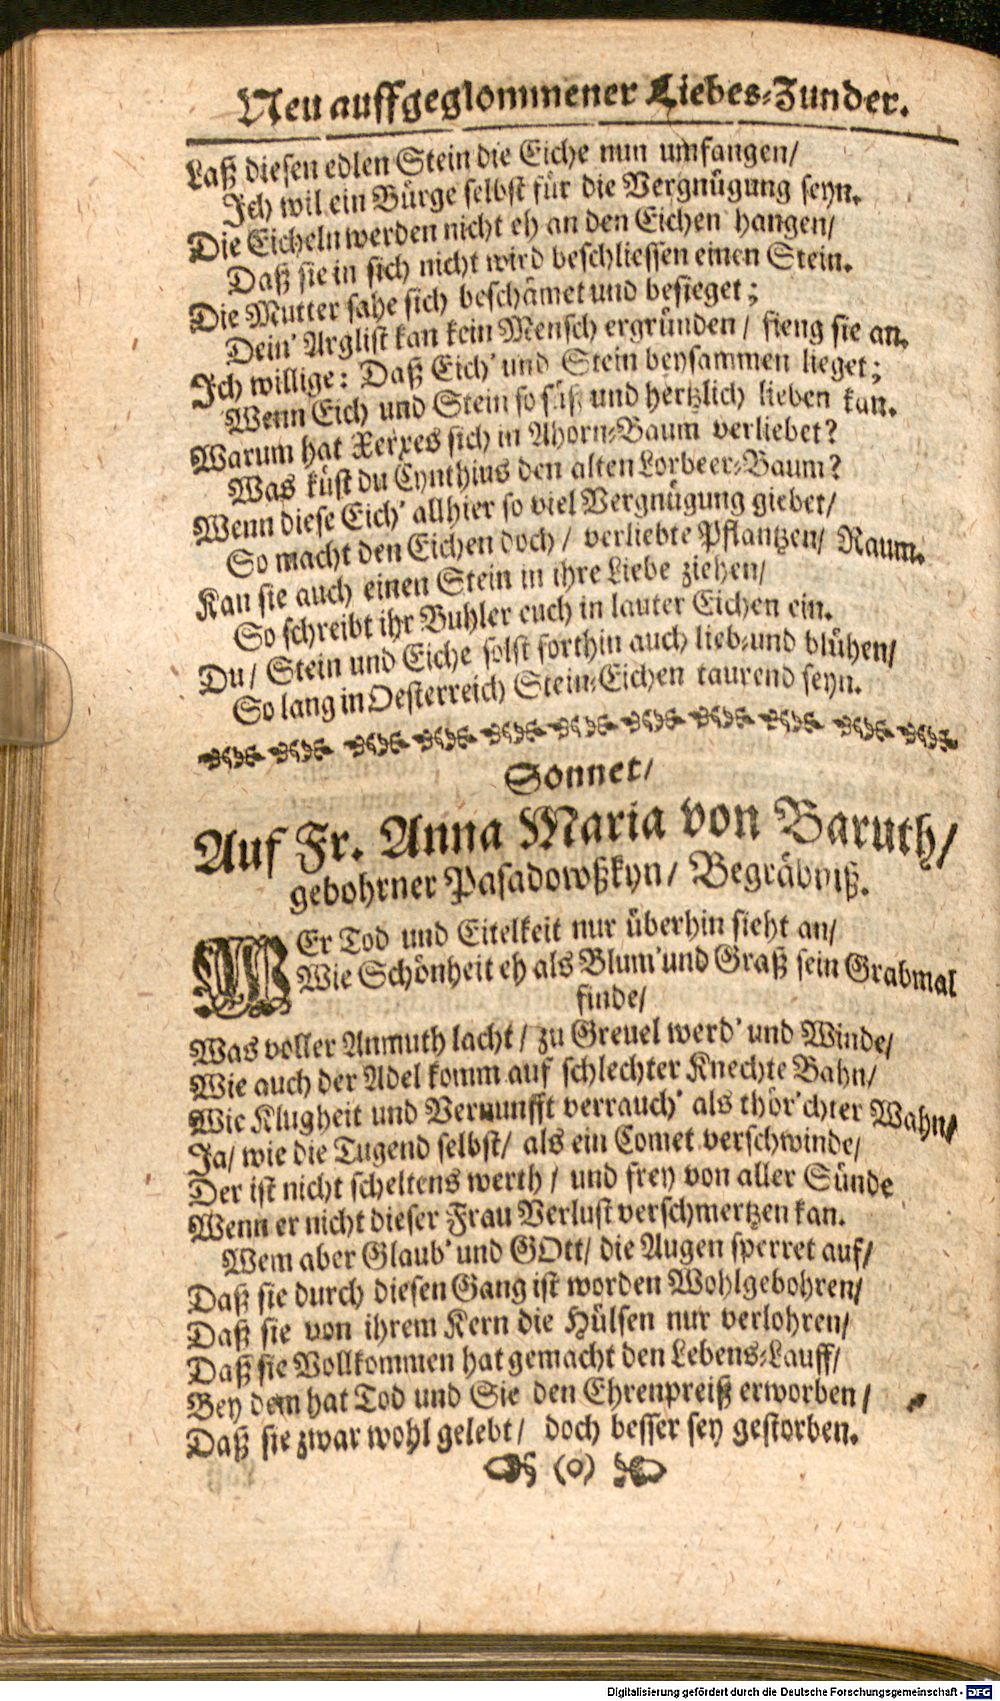 Neu auffgeglommener Liebes-Zunder.
Laß diesen edlen Stein die Eiche nun umfangen/
Jch wil ein Bürge selbst für die Vergnügung seyn.
Die Eicheln werden nicht eh an den Eichen hangen/
Daß sie in sich nicht wird beschliessen einen Stein.
Die Mutter sahe sich beschämet und besieget;
Dein' Arglist kan kein Mensch ergründen/ fieng sie an.
Jch willige: Daß Eich' und Stein beysammen lieget;
Wenn Eich und Stein so süß und hertzlich lieben kan.
Warum hat Xerxes sich in Ahorn-Baum verliebet?
Was küst du Cynthius den alten Lorbeer-Baum?
Wenn diese Eich' allhier so viel Vergnügung giebet/
So macht den Eichen doch/ verliebte Pflantzen/ Raum.
Kan sie auch einen Stein in ihre Liebe ziehen/
So schreibt ihr Buhler euch in lauter Eichen ein.
Du/ Stein und Eiche solst forthin auch lieb-und blühen/
So lang in Oesterreich Stein-Eichen taurend seyn.
Sonnet/
Auf Fr. Anna Maria von Baruth/
gebohrner Pasadowßkyn/ Begräbniß.
WEr Tod und Eitelkeit nur überhin sieht an/
Wie Schönheit eh als Blum' und Graß sein Grabmal
finde/
Was voller Anmuth lacht/ zu Greuel werd' und Winde/
Wie auch der Adel komm auf schlechter Knechte Bahn/
Wie Klugheit und Vernunfft verrauch' als thör'chter Wahn/
Ja/ wie die Tugend selbst/ als ein Comet verschwinde/
Der ist nicht scheltens werth/ und frey von aller Sünde
Wenn er nicht dieser Frau Verlust verschmertzen kan.
Wem aber Glaub' und GOtt/ die Augen sperret auf/
Daß sie durch diesen Gang ist worden Wohlgebohren/
Daß sie von ihrem Kern die Hülsen nur verlohren/
Daß sie Vollkommen hat gemacht den Lebens-Lauff/
Bey dem hat Tod und Sie den Ehrenpreiß erworben/
Daß sie zwar wohl gelebt/ doch besser sey gestorben.
(o)
Digitalisierung gefördert durch die Deutsche Forschungsgemeinschaft - DFG